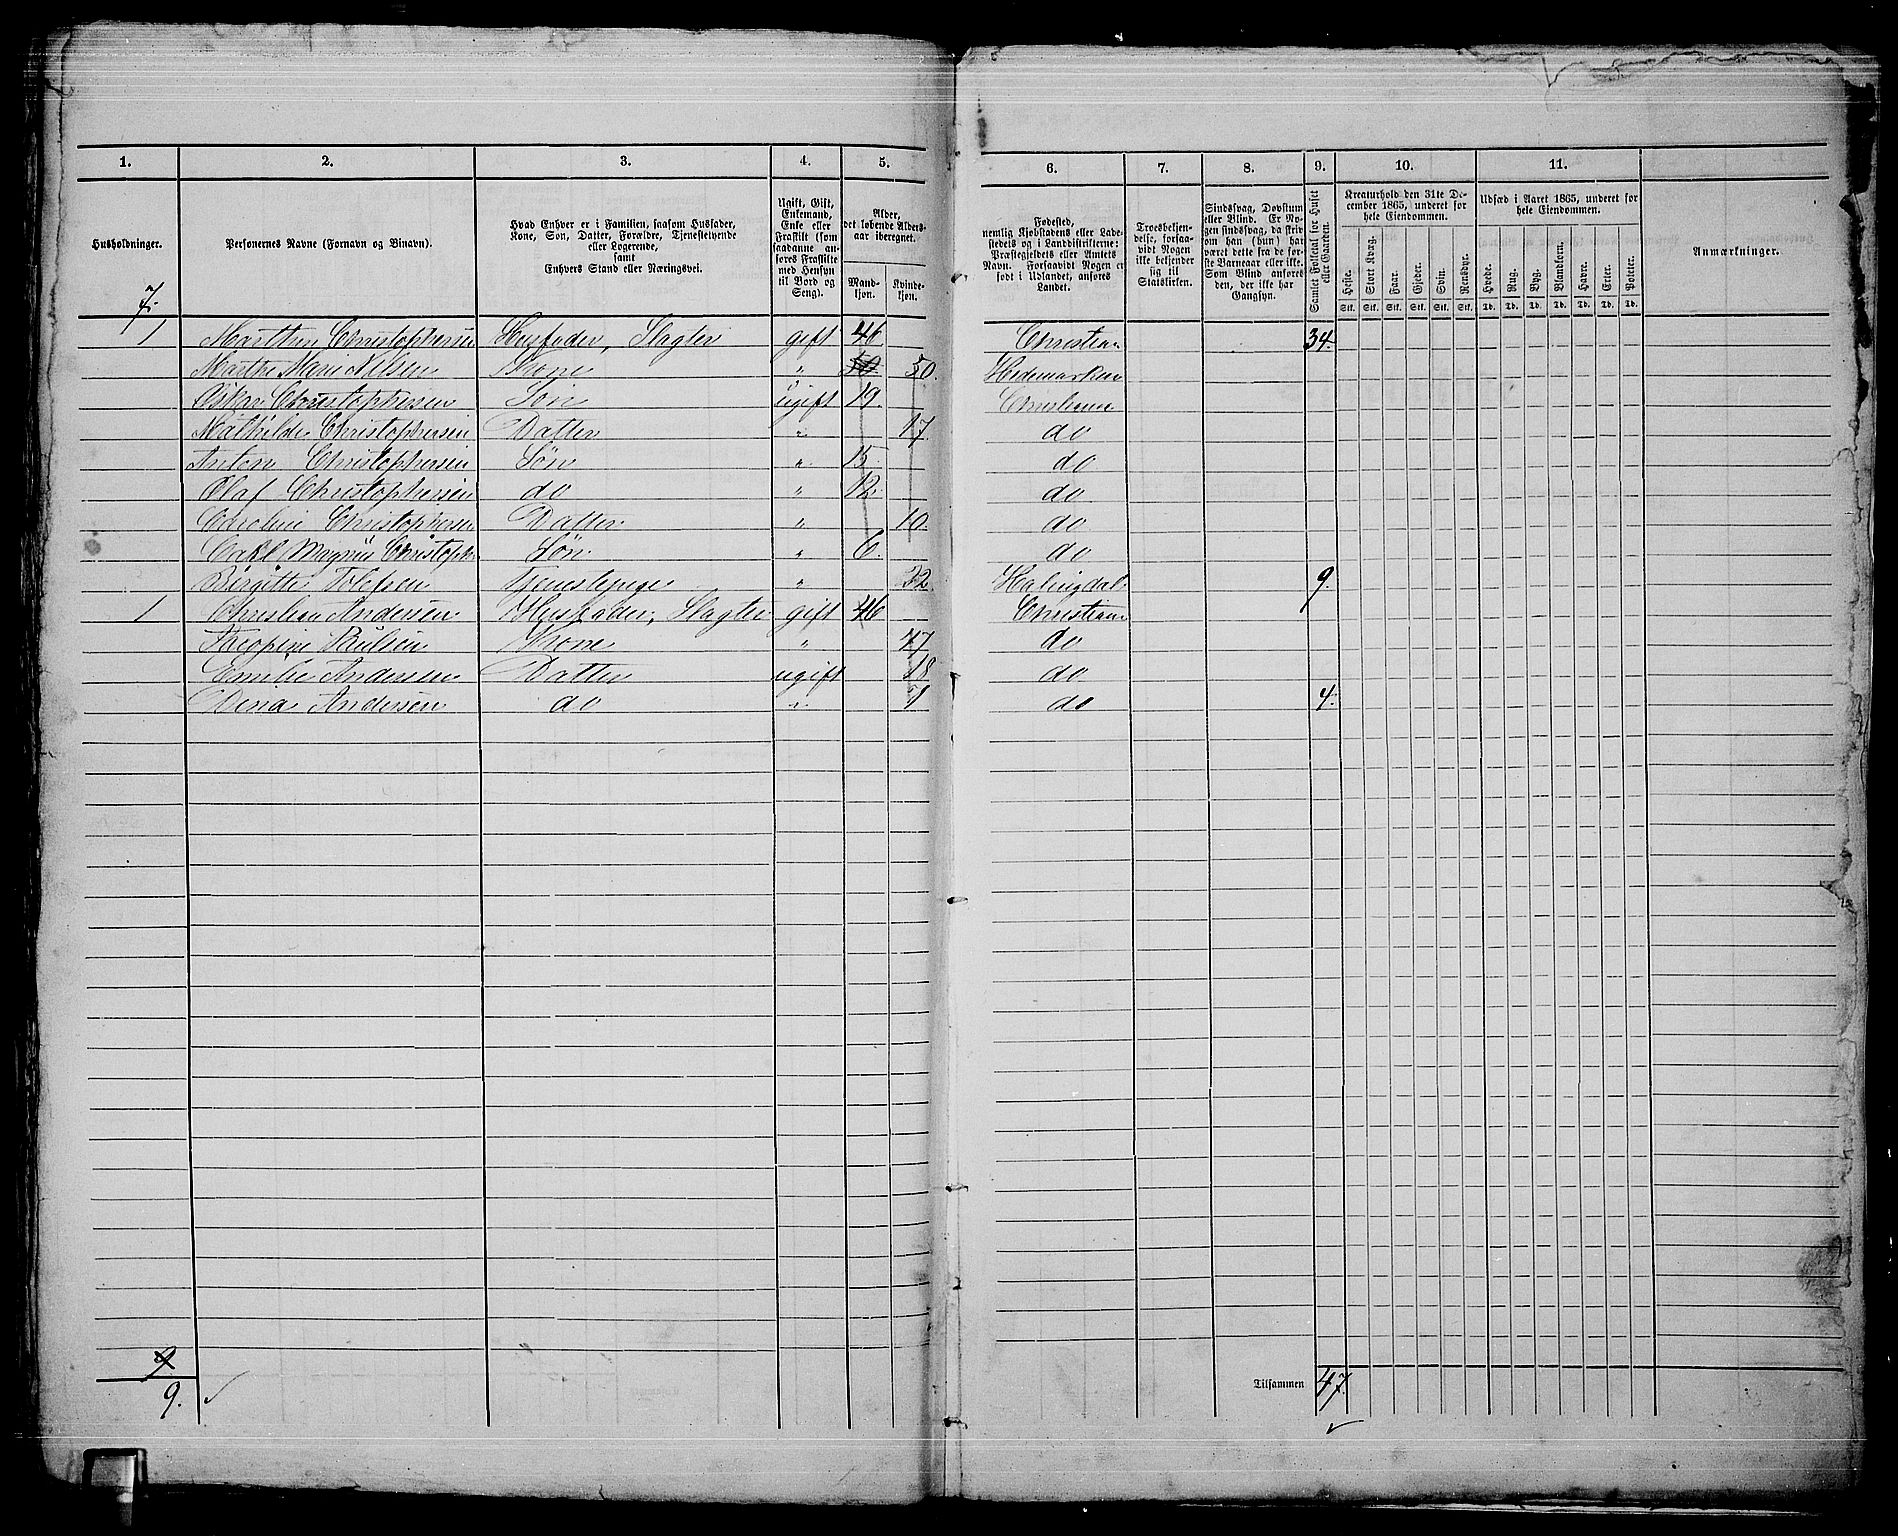 1. 2. 3. 4. 5. 6. 7. 8. 9. 10. 11.
Husholdninger.
Personernes Navne (Fornavn og Binavn).
Hvad Enhver er i Familien, saasom Husfader,
Kone, Søn, Datter, Forældre, Tjenestetyende
eller Logerende,
samt
Enhvers Stand eller Næringsvei.
Ugift, Gift,
Enkemand,
Enke eller
Fraskilt (som
saadanne an-
føres Fraskilte
med Hensyn
til Bord og
Seng).
Alder,
det løbende Alders-
aar iberegnet.
Mand-
kjøn.
Kvinde-
kjøn.
Fødested,
nemlig Kjøbstadens eller Lade-
stedets og i Landdistrikterne:
Præstegjeldets eller Amtets
Navn. Forsaavidt Nogen er
født i Udlandet, anføres
Landet.
Troesbekjen-
delse, forsaa-
vidt Nogen
ikke bekjender
sig til
Statskirken.
Sindssvag, Døvstum
eller Blind. Er No-
gen sindssvag, da skriv
om han (hun) har
været dette fra de før-
ste Barneaar eller ikke.
Som Blind anføres
den, der ikke har
Gangsyn.
Samlet Folketal for Huset
eller Gaarden.
Kreaturhold den 31te De-
cember 1865, underet for
hele Eiendommen.
Heste. Stort Kvæg. Faar. Gjeder. Svin. Rensdyr.
Stk. Stk. Stk. Stk. Stk. Stk.
Udsæd i Aaret 1865, underet for
hele Eiendommen.
Hvede. Rug. Byg. Blandkorn. Havre. Erter. Poteter.
Td. Td. Td. Td. Td. Td. Td.
Anmærkninger.
7.
1 Marthin Christophersen Husfader, Slagter gift 46 Christian 34.
Marthe Marie Nilsen Kone " 50 50. Hedemarken
Oskar Christophersen Søn ugift 19. Christiania
Mathilde Christophersen Datter " 17. do
Anton Christophersen Søn " 15. do
Olaf Christophersen do " 12. do
Caroline Christophersen Datter " 10. do
Carl Magnus Christoph Søn " 6. do
Birgitte Tolefsen Tjenestepige " 22. Halingdal 9.
1 Christian Andersen Husfader, Slagter gift 46 Christiania
Jacopine Paulsen Kone " 47 do
Emilie Andersen Datter ugift 18 do
Dina Andersen do " 7 do 4.
9
9.
Tilsammen 47.